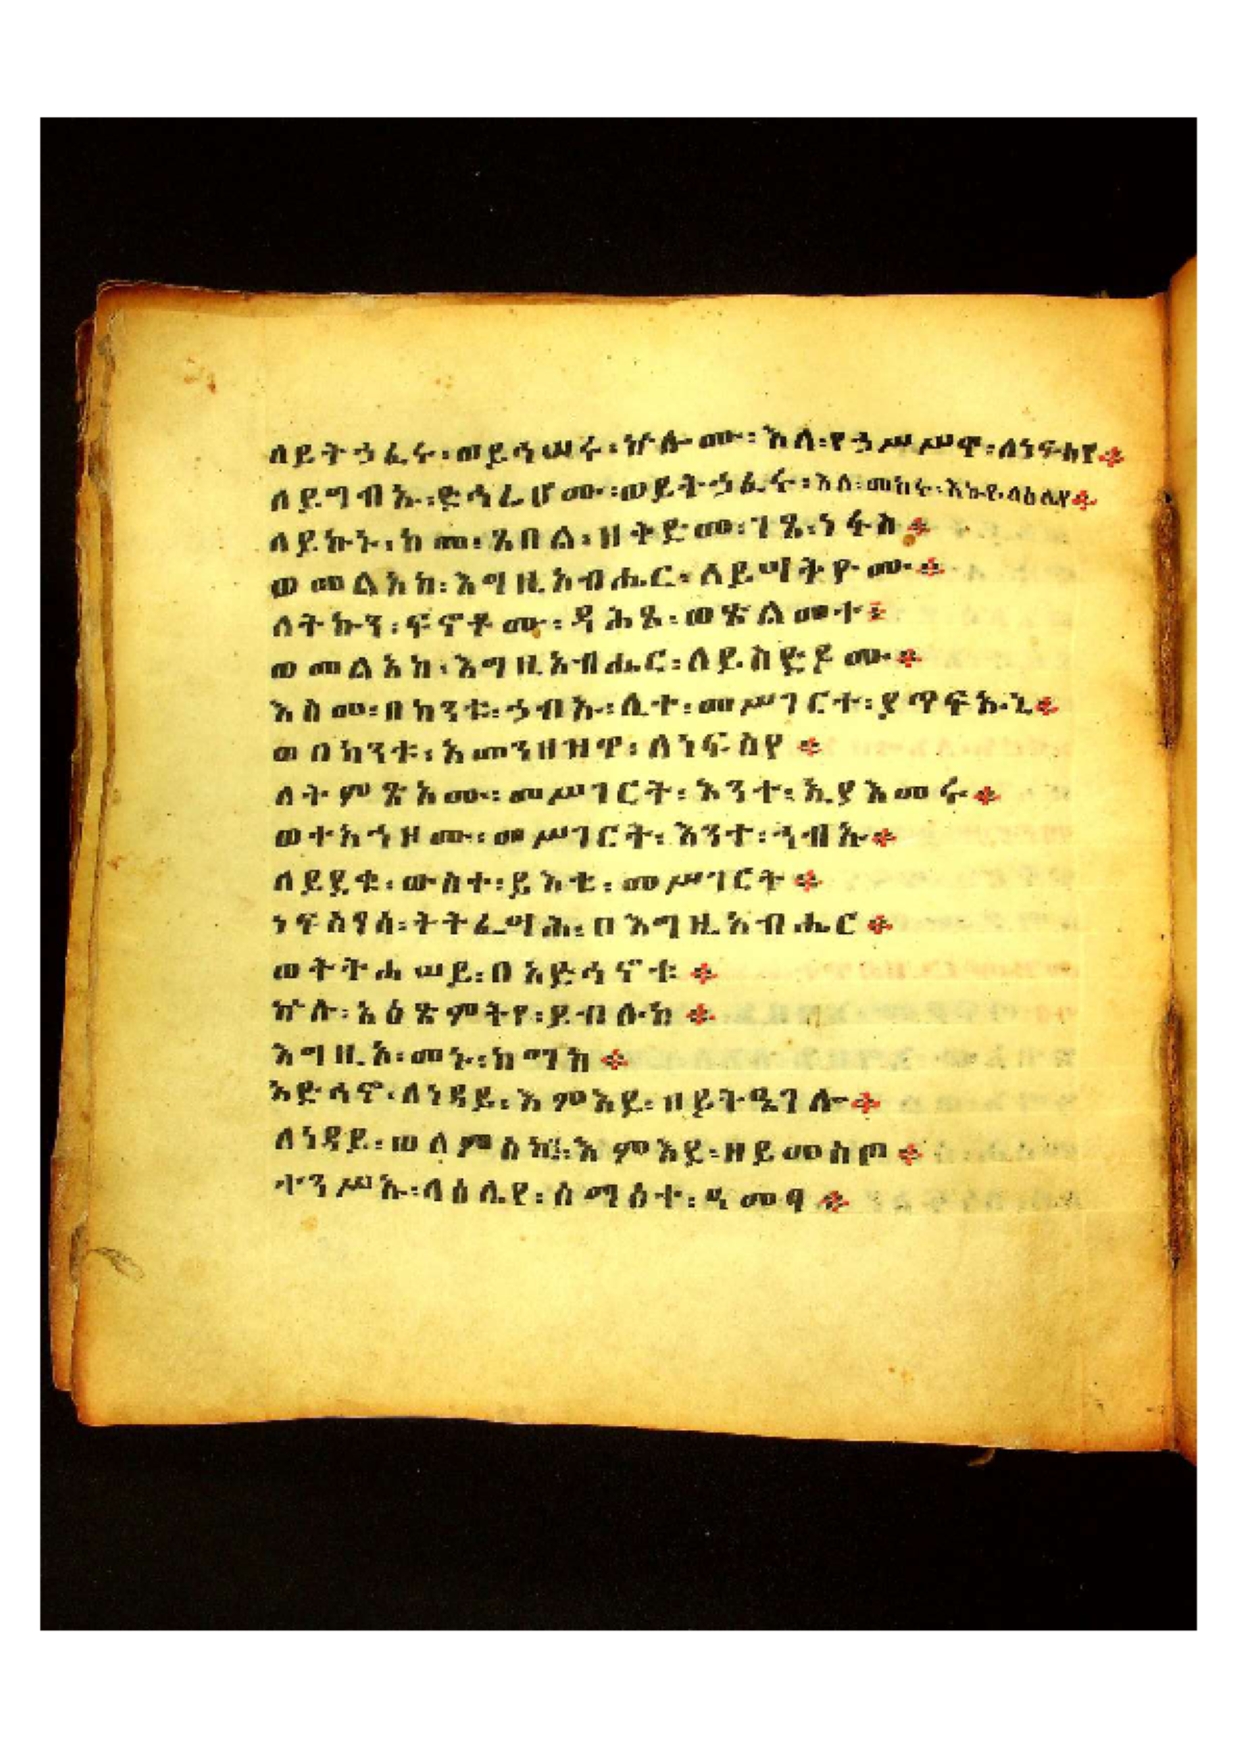 ለይትኃፈሩ፡ወይኅሠሩ፡ኵሎሙ፡እለ፡የኃሥሥዋ፡ለነፍስየ፨
ለይግብኡ፡ድኅሪሆሙ፡ወይትኃፈሩ፡እለ፡መከሩ፡እኩየ፡ላዕሌየ፨
ለይኩኑ፡ከመ፡ጸበል፡ዘቅድመ፡ገጸ፡ነፋስ፨
ወመልአከ፡እግዚአብሔር፡ለይሣቅዮሙ፨
ለትኩን፡ፍኖቶሙ፡ዳሕፀ፡ወጽልመተ፨
ወመልአከ፡እግዚአብሔር፡ለይስድዶሙ፨
እስመ፡በከንቱ፡ኃብኡ፡ሊተ፡መሥገርተ፡ያጥፍኡኒ፨
ወበከንቱ፡አመንዘዝዋ፡ለነፍስየ፨
ለትምጽአሙ፡መሥገርት፡እንተ፡ኢያእመሩ፨
ወተአኀዞሙ፡መሥገርት፡እንተ፡ኀብኡ፨
ለይደቁ፡ውስተ፡ይእቲ፡መሥገርት፨
ነፍስየሰ፡ትትፈሣሕ፡በእግዚአብሔር፨
ወትትሐሠይ፡በአድኅኖቱ፨
ኵሉ፡አዕጽምትየ፡ይብሉከ፨
እግዚኦ፡መኑ፡ከማከ፨
አድኅኖ፡ለነዳይ፡እምእደ፡ዘይትዔገሎ፨
ለነዳይ፡ወለምስኪን፡እምእደ፡ዘይመስጦ፨
ተንሥኡ፡ላዕሌየ፡ሰማዕተ፡ዓመፃ፨